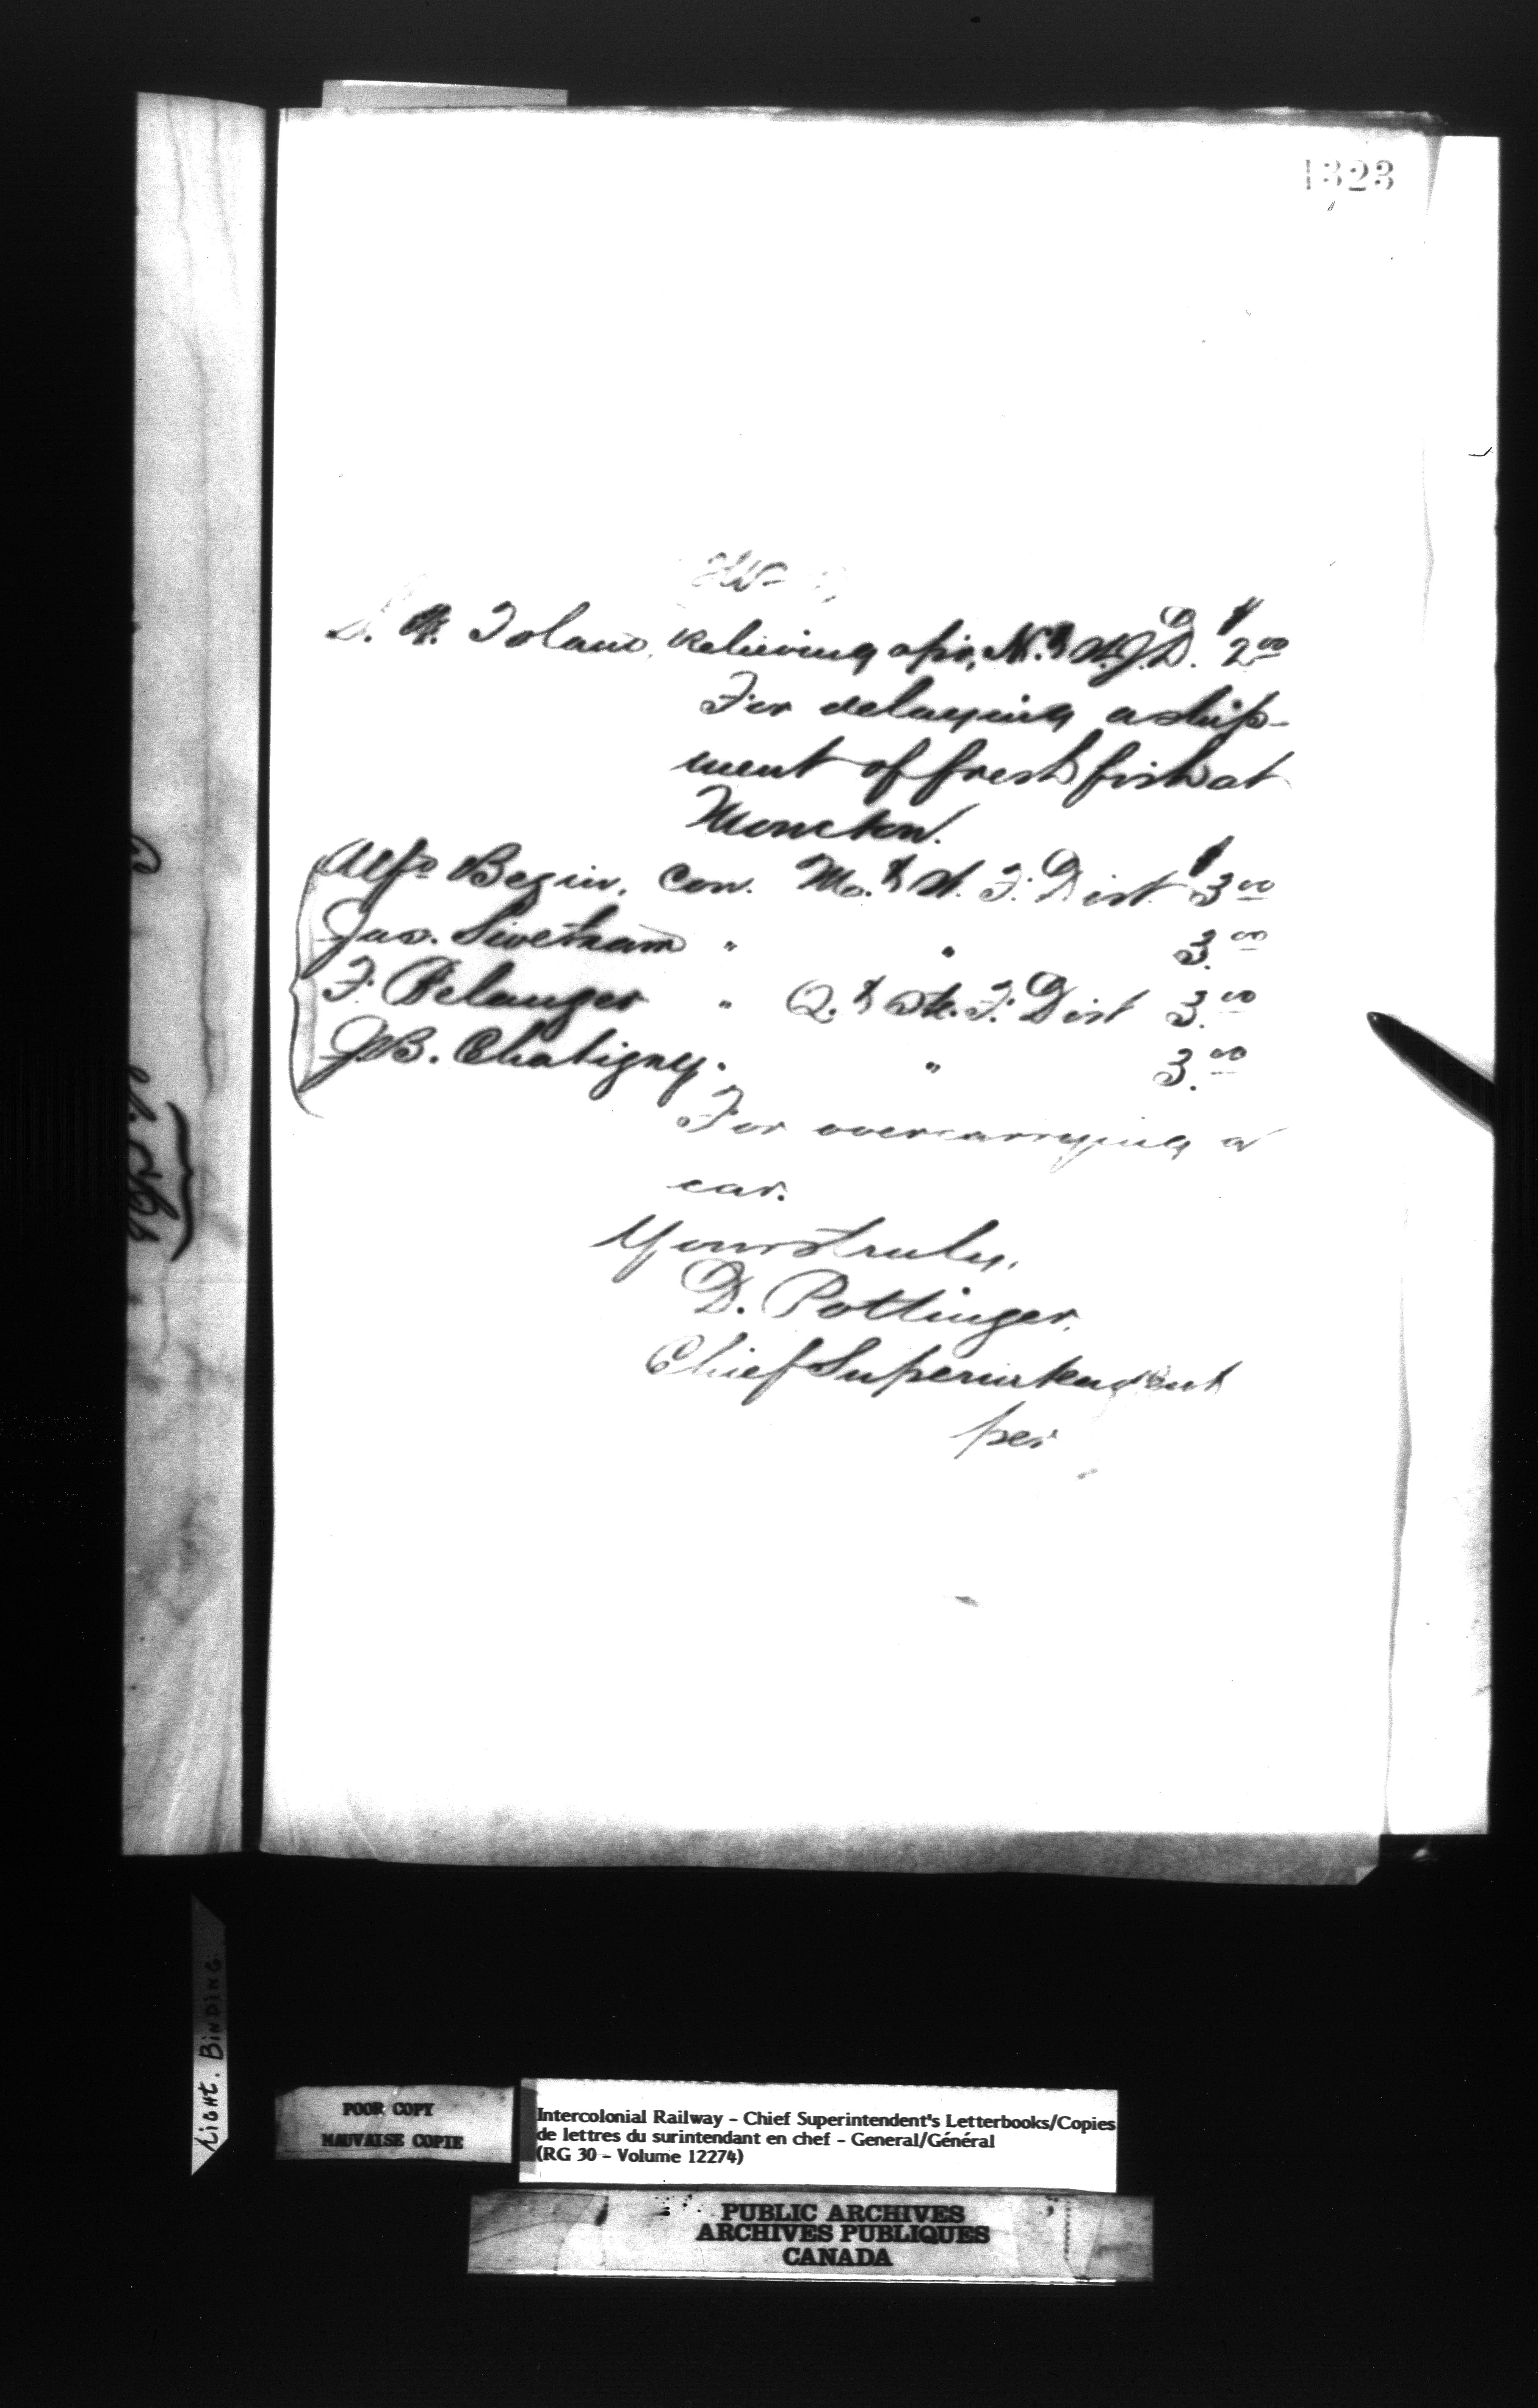 1323
Toland, Relieving opr, N. & St. J. D. $2.00
For delaying a ship-
ment of fresh fish at
Moncton.
Alfd Begin, Con. Mo. & St. F. Dist $3.00
Jas. Livetham " " 3.00
F. Belanger " Q. & Ste. F. Dist 3.00
J.B. Chatigny. " 3.00
For overcarrying a
car.
Yours truly,
D. Pottinger,
Chief Superintendent
per
LIGHT. BINDING.
POOR COPY
MAUVAISE COPIE
Intercolonial Railway - Chief Superintendent's Letterbooks/Copies
de lettres du surintendant en chef - General/Général
(RG 30 - Volume 12274)
PUBLIC ARCHIVES
ARCHIVES PUBLIQUES
CANADA